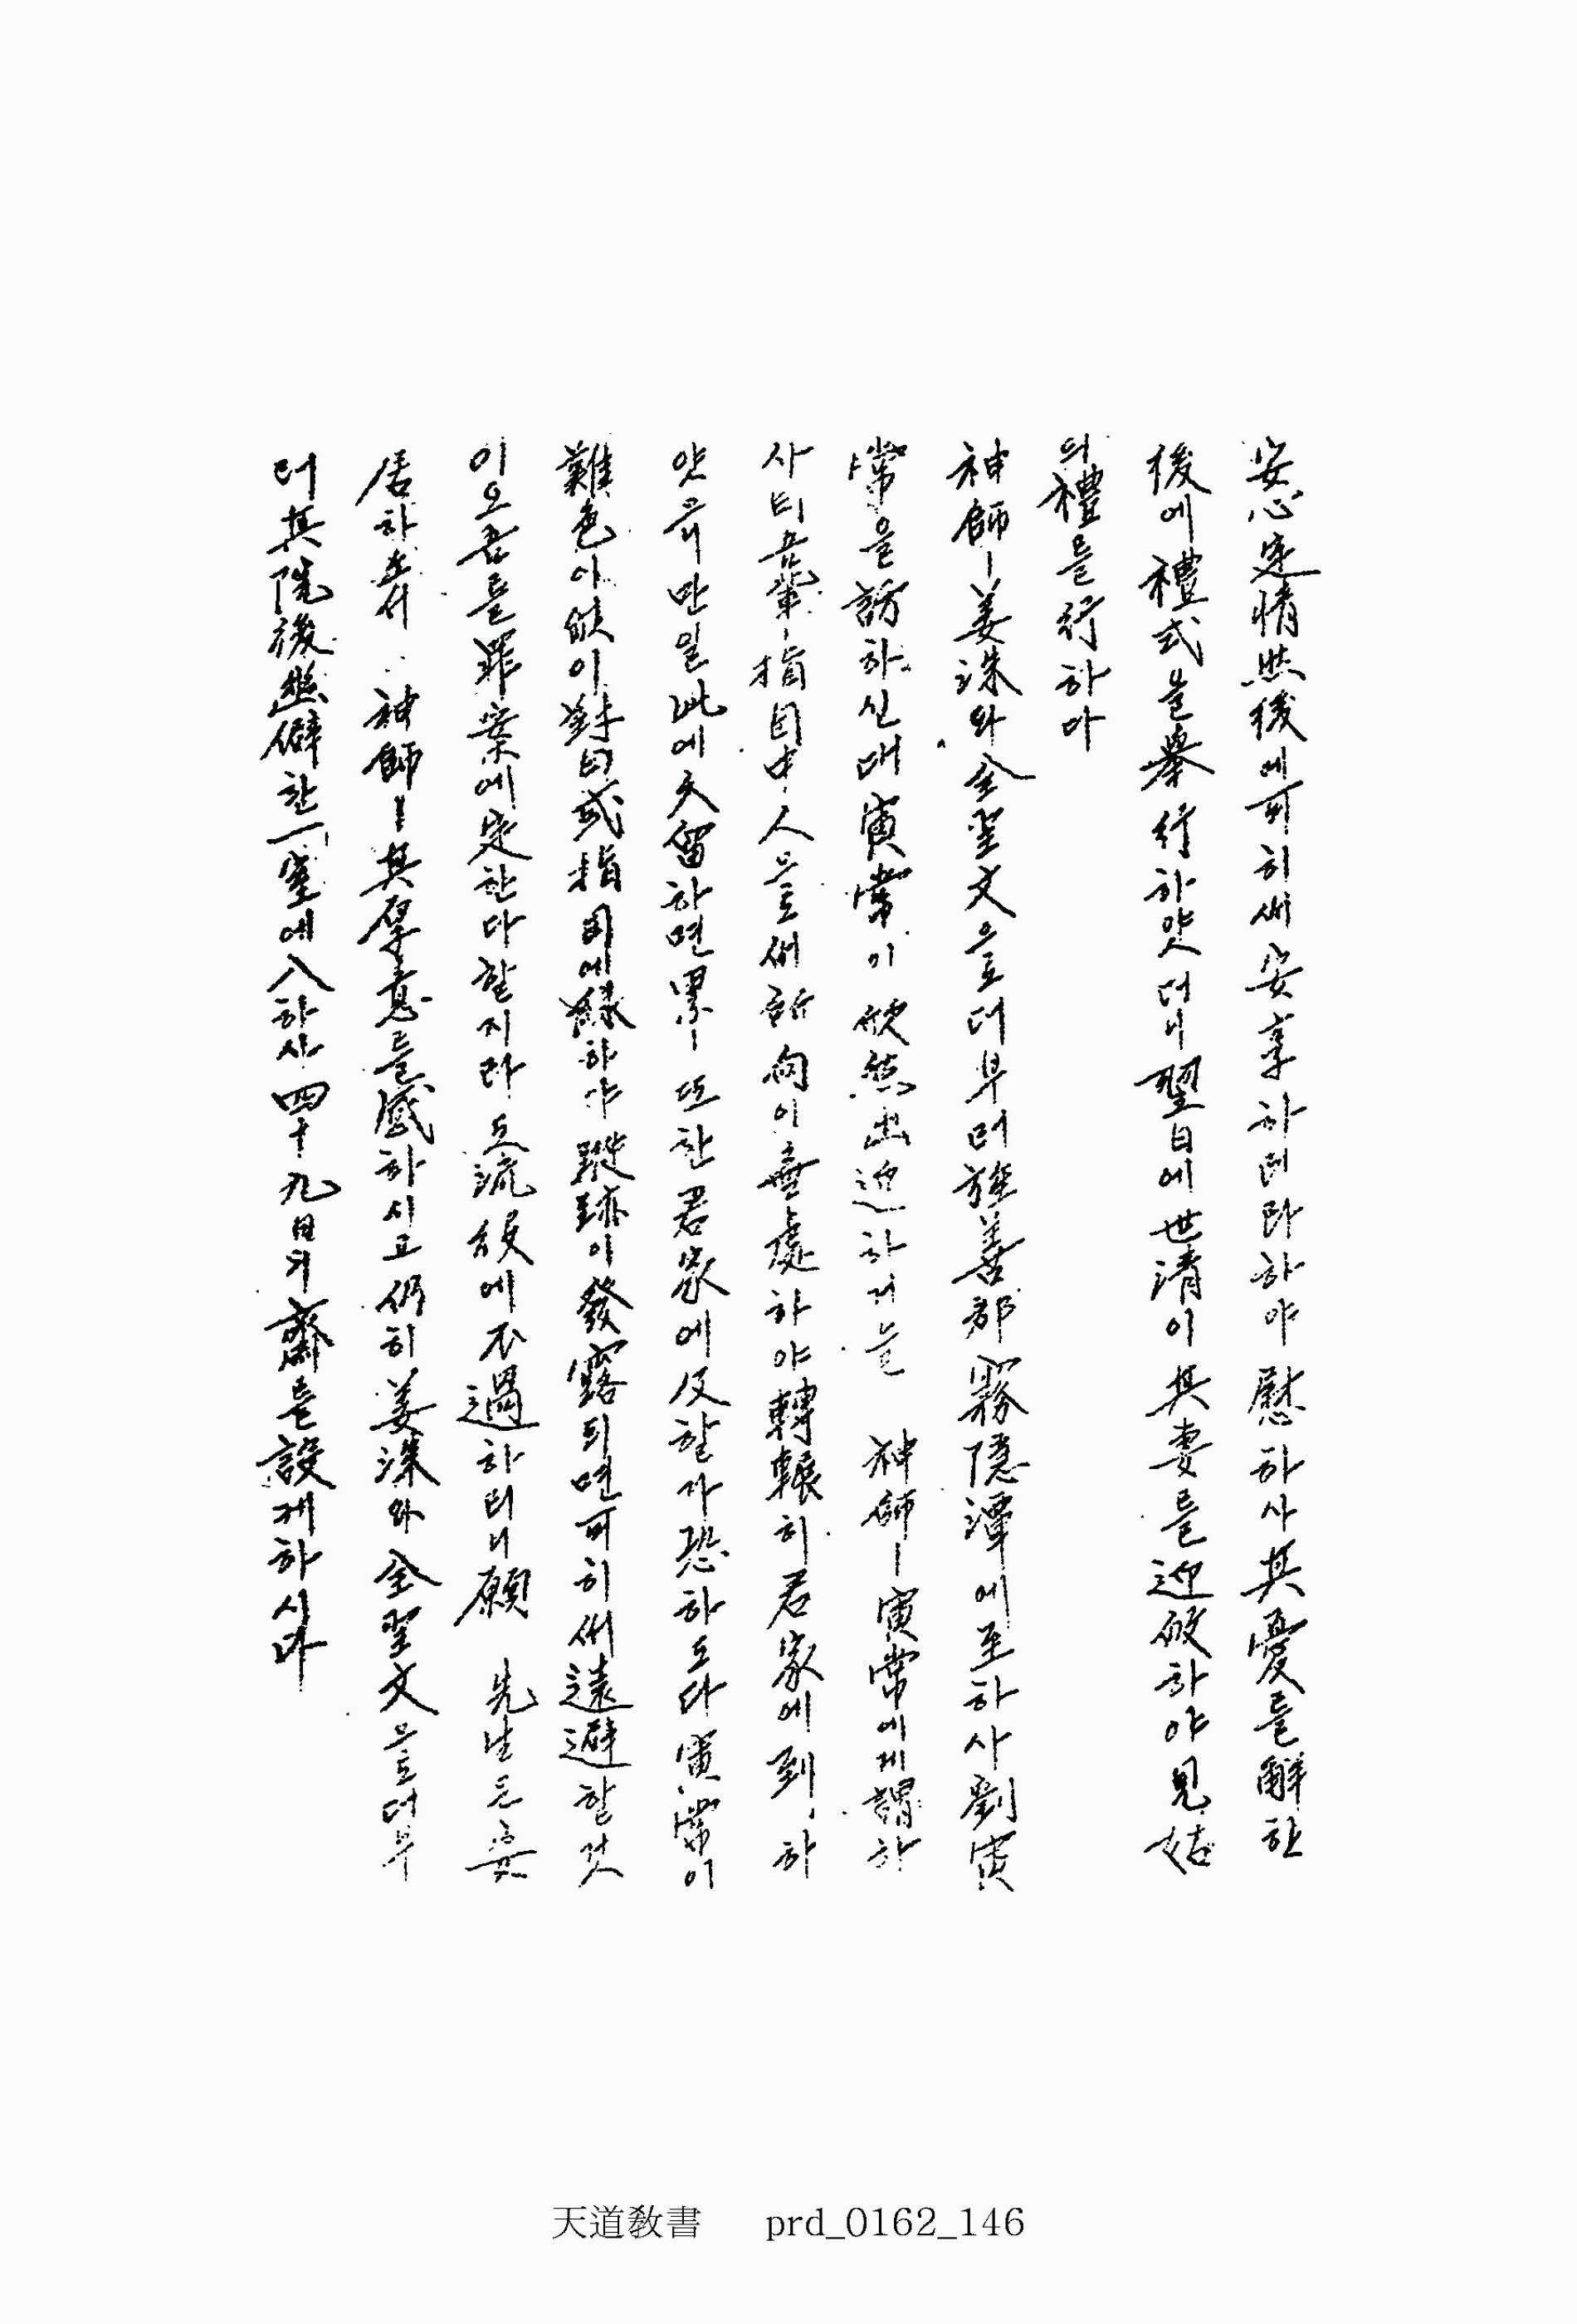 安心定情然後에可히써安享하리라하야慰하사其憂를解한
後에禮式을擧行하얏더니翌日에世淸이其妻를迎하야見姑
의禮를行하다
神師ㅣ姜洙와全聖文으로더부러旌善郡霧隱潭에至하사劉寅
常을訪하신대寅常이欣然出迎하거늘 神師ㅣ寅常에게謂하
사되吾輩ㅣ指目中人으로써所向이無處하야轉輾히君家에到하
얏스나만일此에久留하면累ㅣ또한君家에及할가恐하도다寅常이
難色이업시對曰或指目에綠하야蹤跡이發露되면可히써遠避할것
이오吾를罪案에定한다할지라도流配에不過하리니願 先生은安
居하쇼셔 神師ㅣ其厚意를感하시고仍히姜洙와全聖文으로더부
러其院後幽僻한一室에入하사四十九日의齋를設케하시다
天道敎書 prd_0162_146